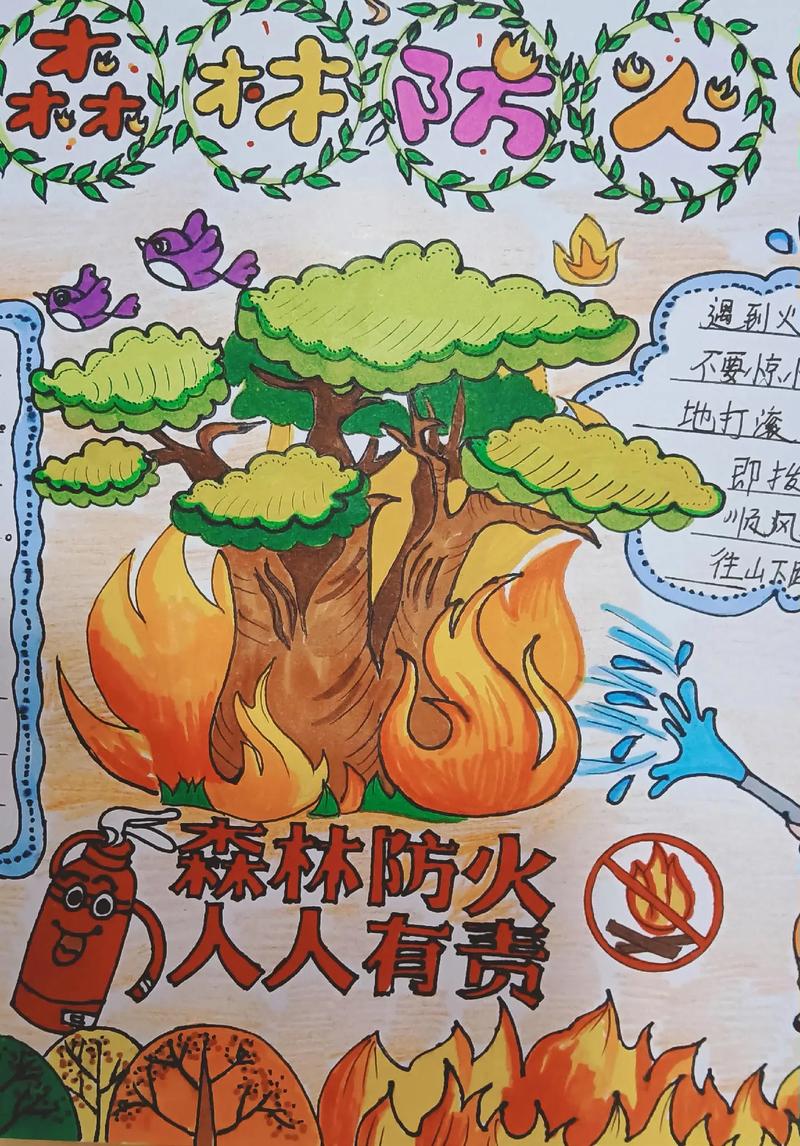 森林防火
遇到火
不要惊
地打滚
即拨
顺风
往山下
森林防火
人人有责